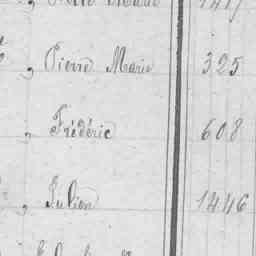 , Pierre Marie 325
, Frédéric 608
, Julien 1446